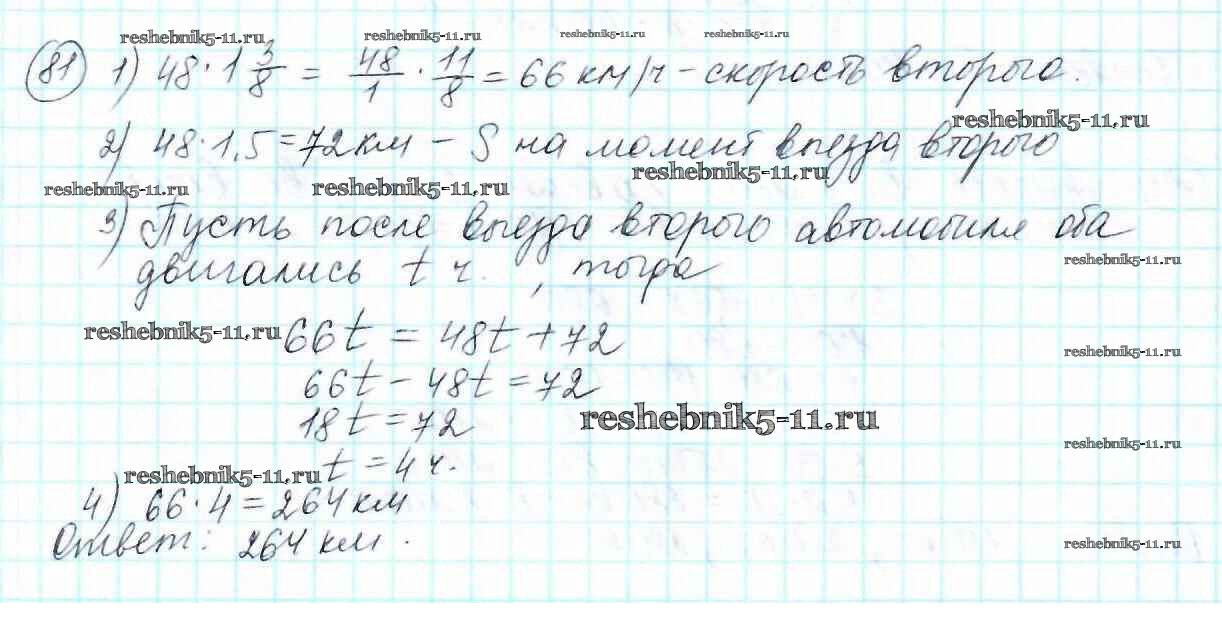 reshebnik5-11.ru reshebnik5-11.ru reshebnik5-11.ru reshebnik5-11.ru
81 1) 48 · 1 3/8 = 48/1 · 11/8 = 66 км/ч – скорость второго.
reshebnik5-11.ru
2) 48 · 1,5 = 72 км – S на момент выезда второго
reshebnik5-11.ru reshebnik5-11.ru reshebnik5-11.ru
3) Пусть после выезда второго автомобиля оба
двигались t ч., тогда
reshebnik5-11.ru
reshebnik5-11.ru 66t = 48t + 72
reshebnik5-11.ru
66t – 48t = 72
18t = 72
reshebnik5-11.ru
reshebnik5-11.ru
reshebnik5-11.ru t = 4 ч.
4) 66 · 4 = 264 км
Ответ: 264 км.
reshebnik5-11.ru